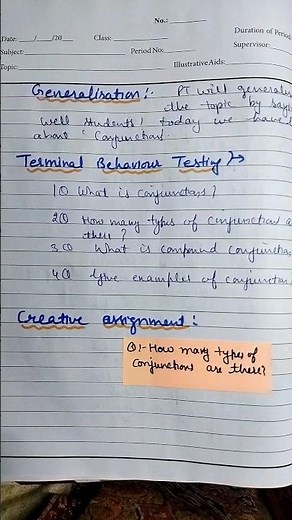 No.:
Date: / /20 Class: Duration of Period:
Subject: Period No.: Supervisor:
Topic: Illustrative Aids:
Generalisation:- PT will generalis
the topic by say
well students! today we have l
about "Conjunction
Terminal Behaviour Testing →
1Q What is conjunctions?
2Q How many types of conjunction a
there?
3Q What is compound conjunction
4Q Give examples of conjunction
Creative assignment:
Q:- How many types of
conjunctions are there?